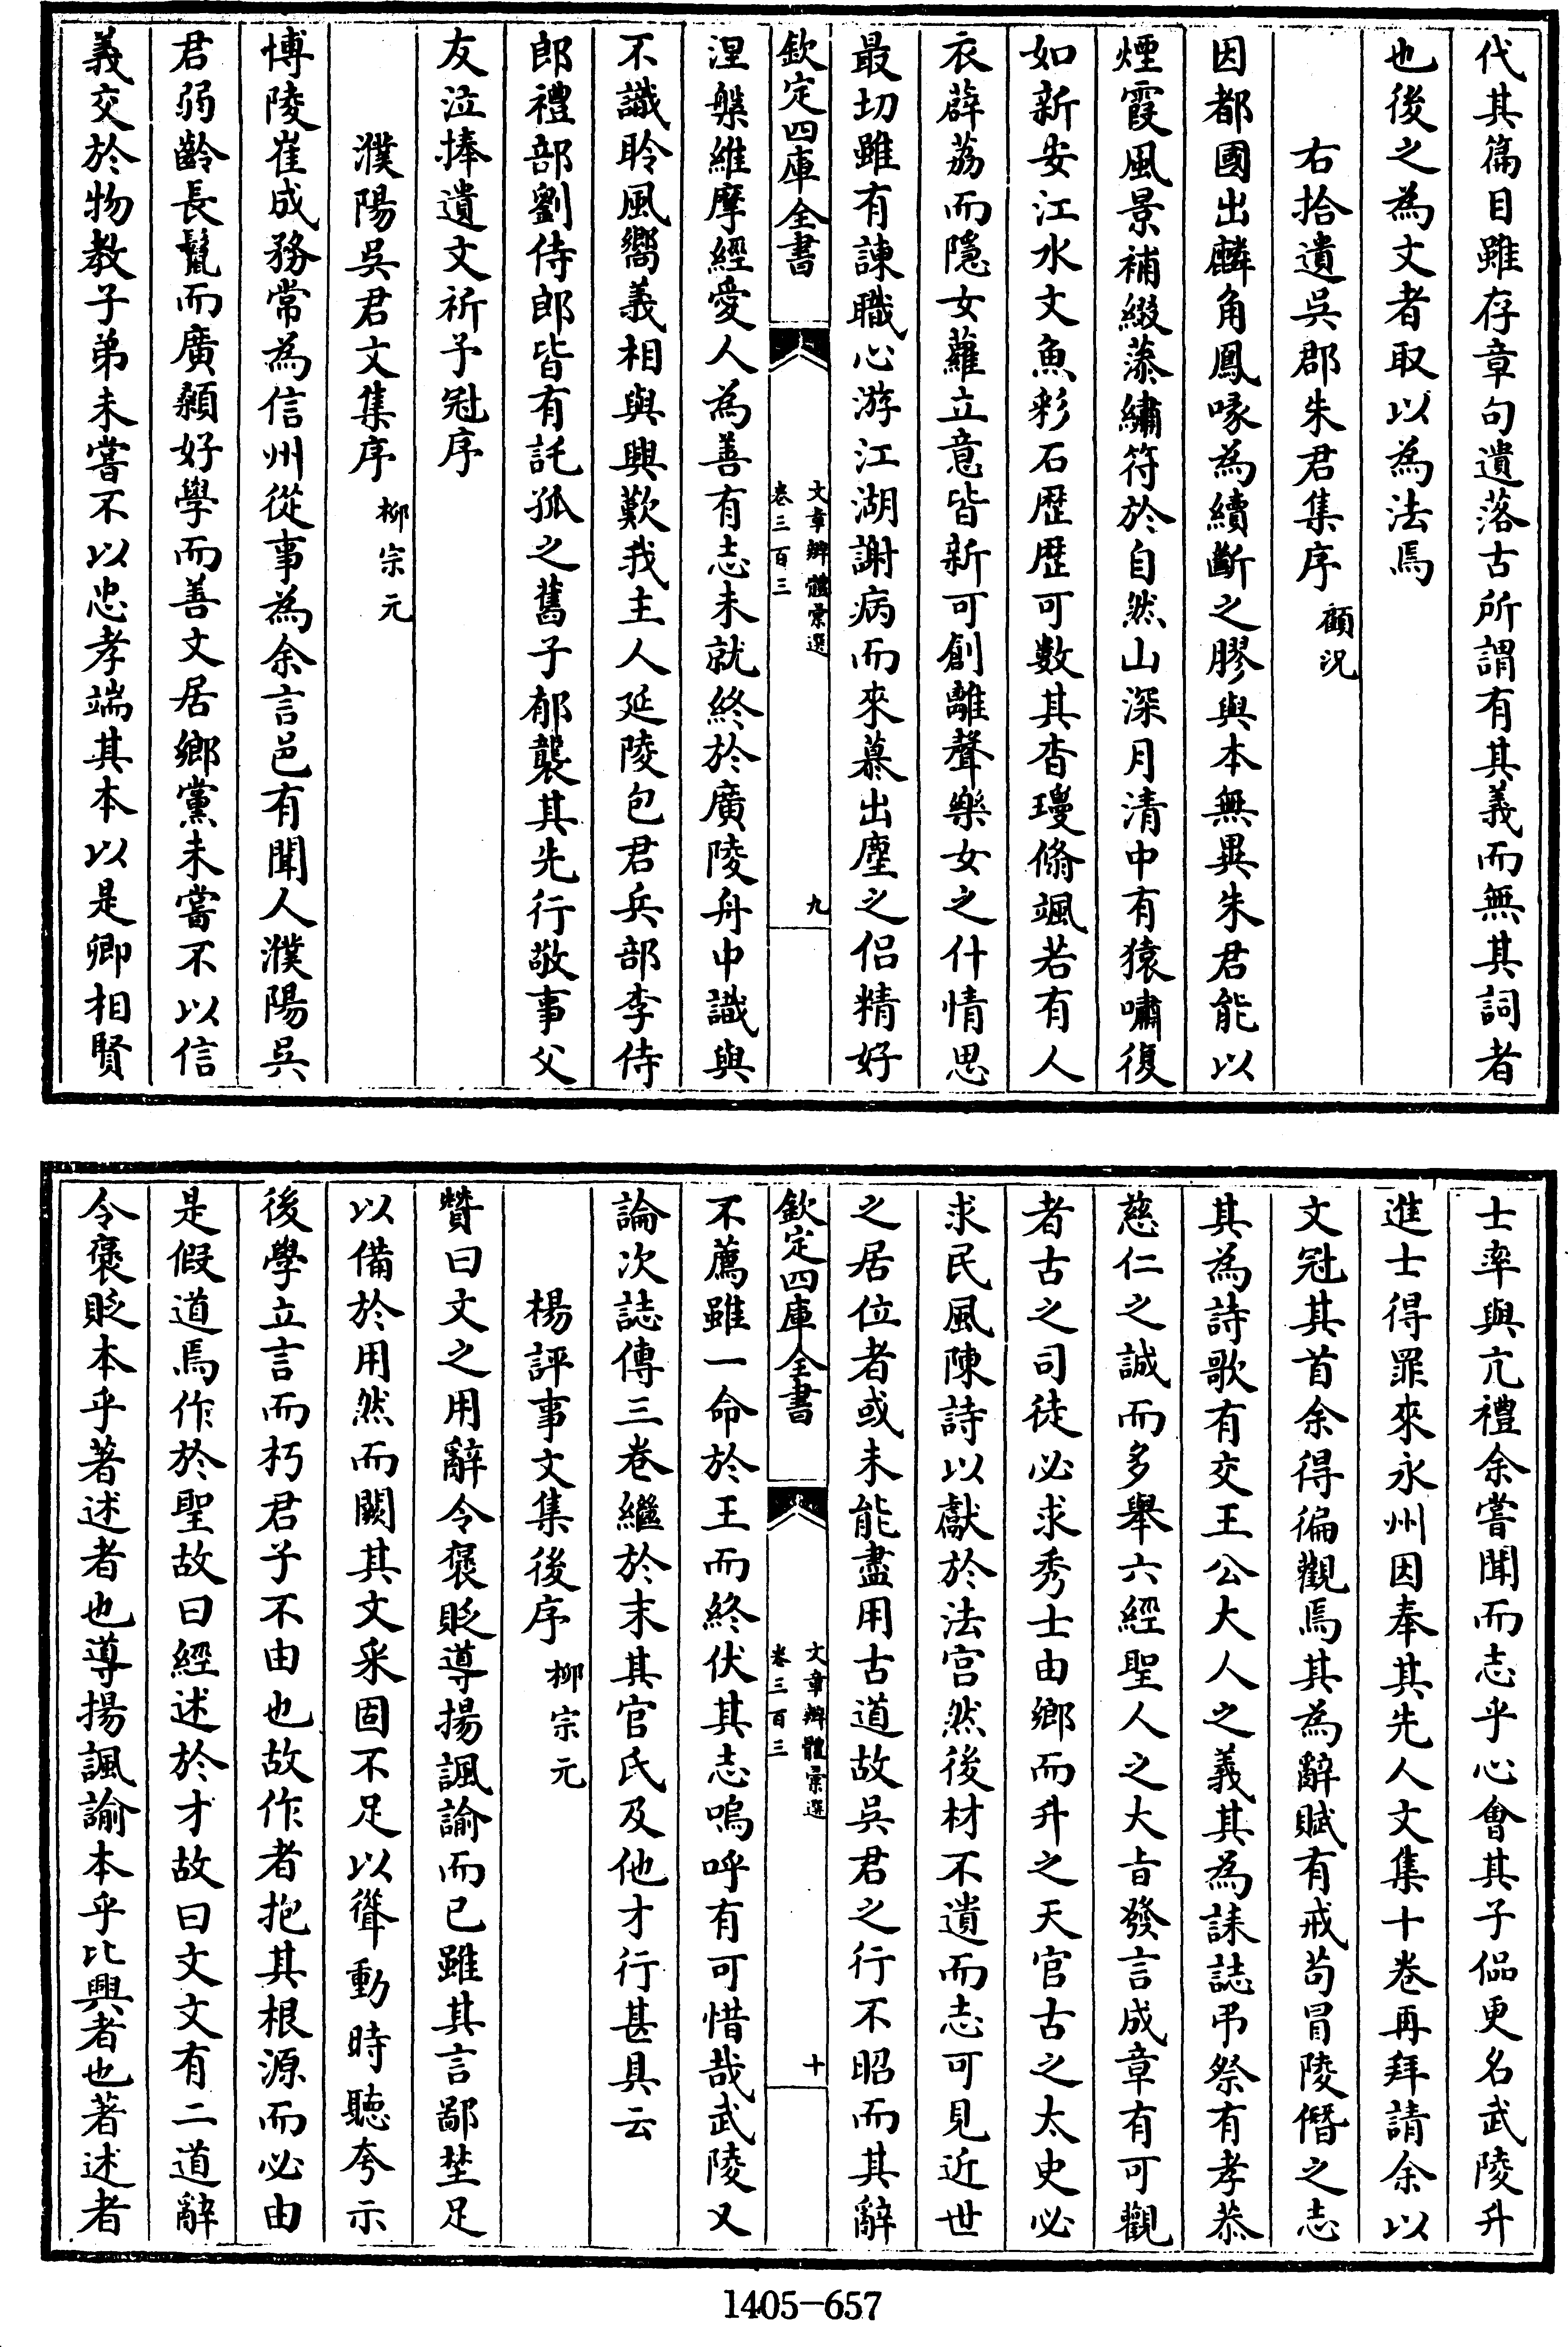 代其篇目雖存章句遺落古所謂有其義而無其詞者
也後之為文者取以為法焉
右拾遺吳郡朱君集序 顧況
因都國出麟角鳳喙為續斷之膠與本無異朱君能以
煙霞風景補綴藻繡符於自然山深月清中有猿嘯復
如新安江水文魚彩石歴歴可數其杳瓊翛颯若有人
衣薜荔而隱女蘿立意皆新可創離聲樂女之什情思
最切雖有諫職心游江湖謝病而來慕出塵之侣精好
欽定四庫全書 文章辨體彙選 卷三百三 九
涅槃維摩經愛人為善有志未就終於廣陵舟中識與
不識聆風嚮義相與興歎我主人延陵包君兵部李侍
郎禮部劉侍郎皆有託孤之舊子郁襲其先行敬事父
友泣捧遺文祈予冠序
濮陽吳君文集序 柳宗元
博陵崔成務常為信州從事為余言邑有聞人濮陽吳
君弱齡長鬛而廣顙好學而善文居鄉黨未嘗不以信
義交於物教子弟未嘗不以忠孝端其本以是卿相賢
士率與亢禮余嘗聞而志乎心會其子偘更名武陵升
進士得罪來永州因奉其先人文集十卷再拜請余以
文冠其首余得徧觀焉其為辭賦有戒茍冒陵僭之志
其為詩歌有交王公大人之義其為誄誌弔祭有孝恭
慈仁之誠而多舉六經聖人之大旨發言成章有可觀
者古之司徒必求秀士由鄉而升之天官古之太史必
求民風陳詩以獻於法宫然後材不遺而志可見近世
之居位者或未能盡用古道故吳君之行不昭而其辭
欽定四庫全書 文章辨體彙選 卷三百三 十
不薦雖一命於王而終伏其志嗚呼有可惜哉武陵又
論次誌傳三卷繼於末其官氏及他才行甚具云
楊評事文集後序 柳宗元
贊曰文之用辭令褒貶導揚諷諭而已雖其言鄙埜足
以備於用然而闕其文采固不足以聳動時聽夸示
後學立言而朽君子不由也故作者抱其根源而必由
是假道焉作於聖故曰經述於才故曰文文有二道辭
令褒貶本乎著述者也導揚諷諭本乎比興者也著述者
1405-657